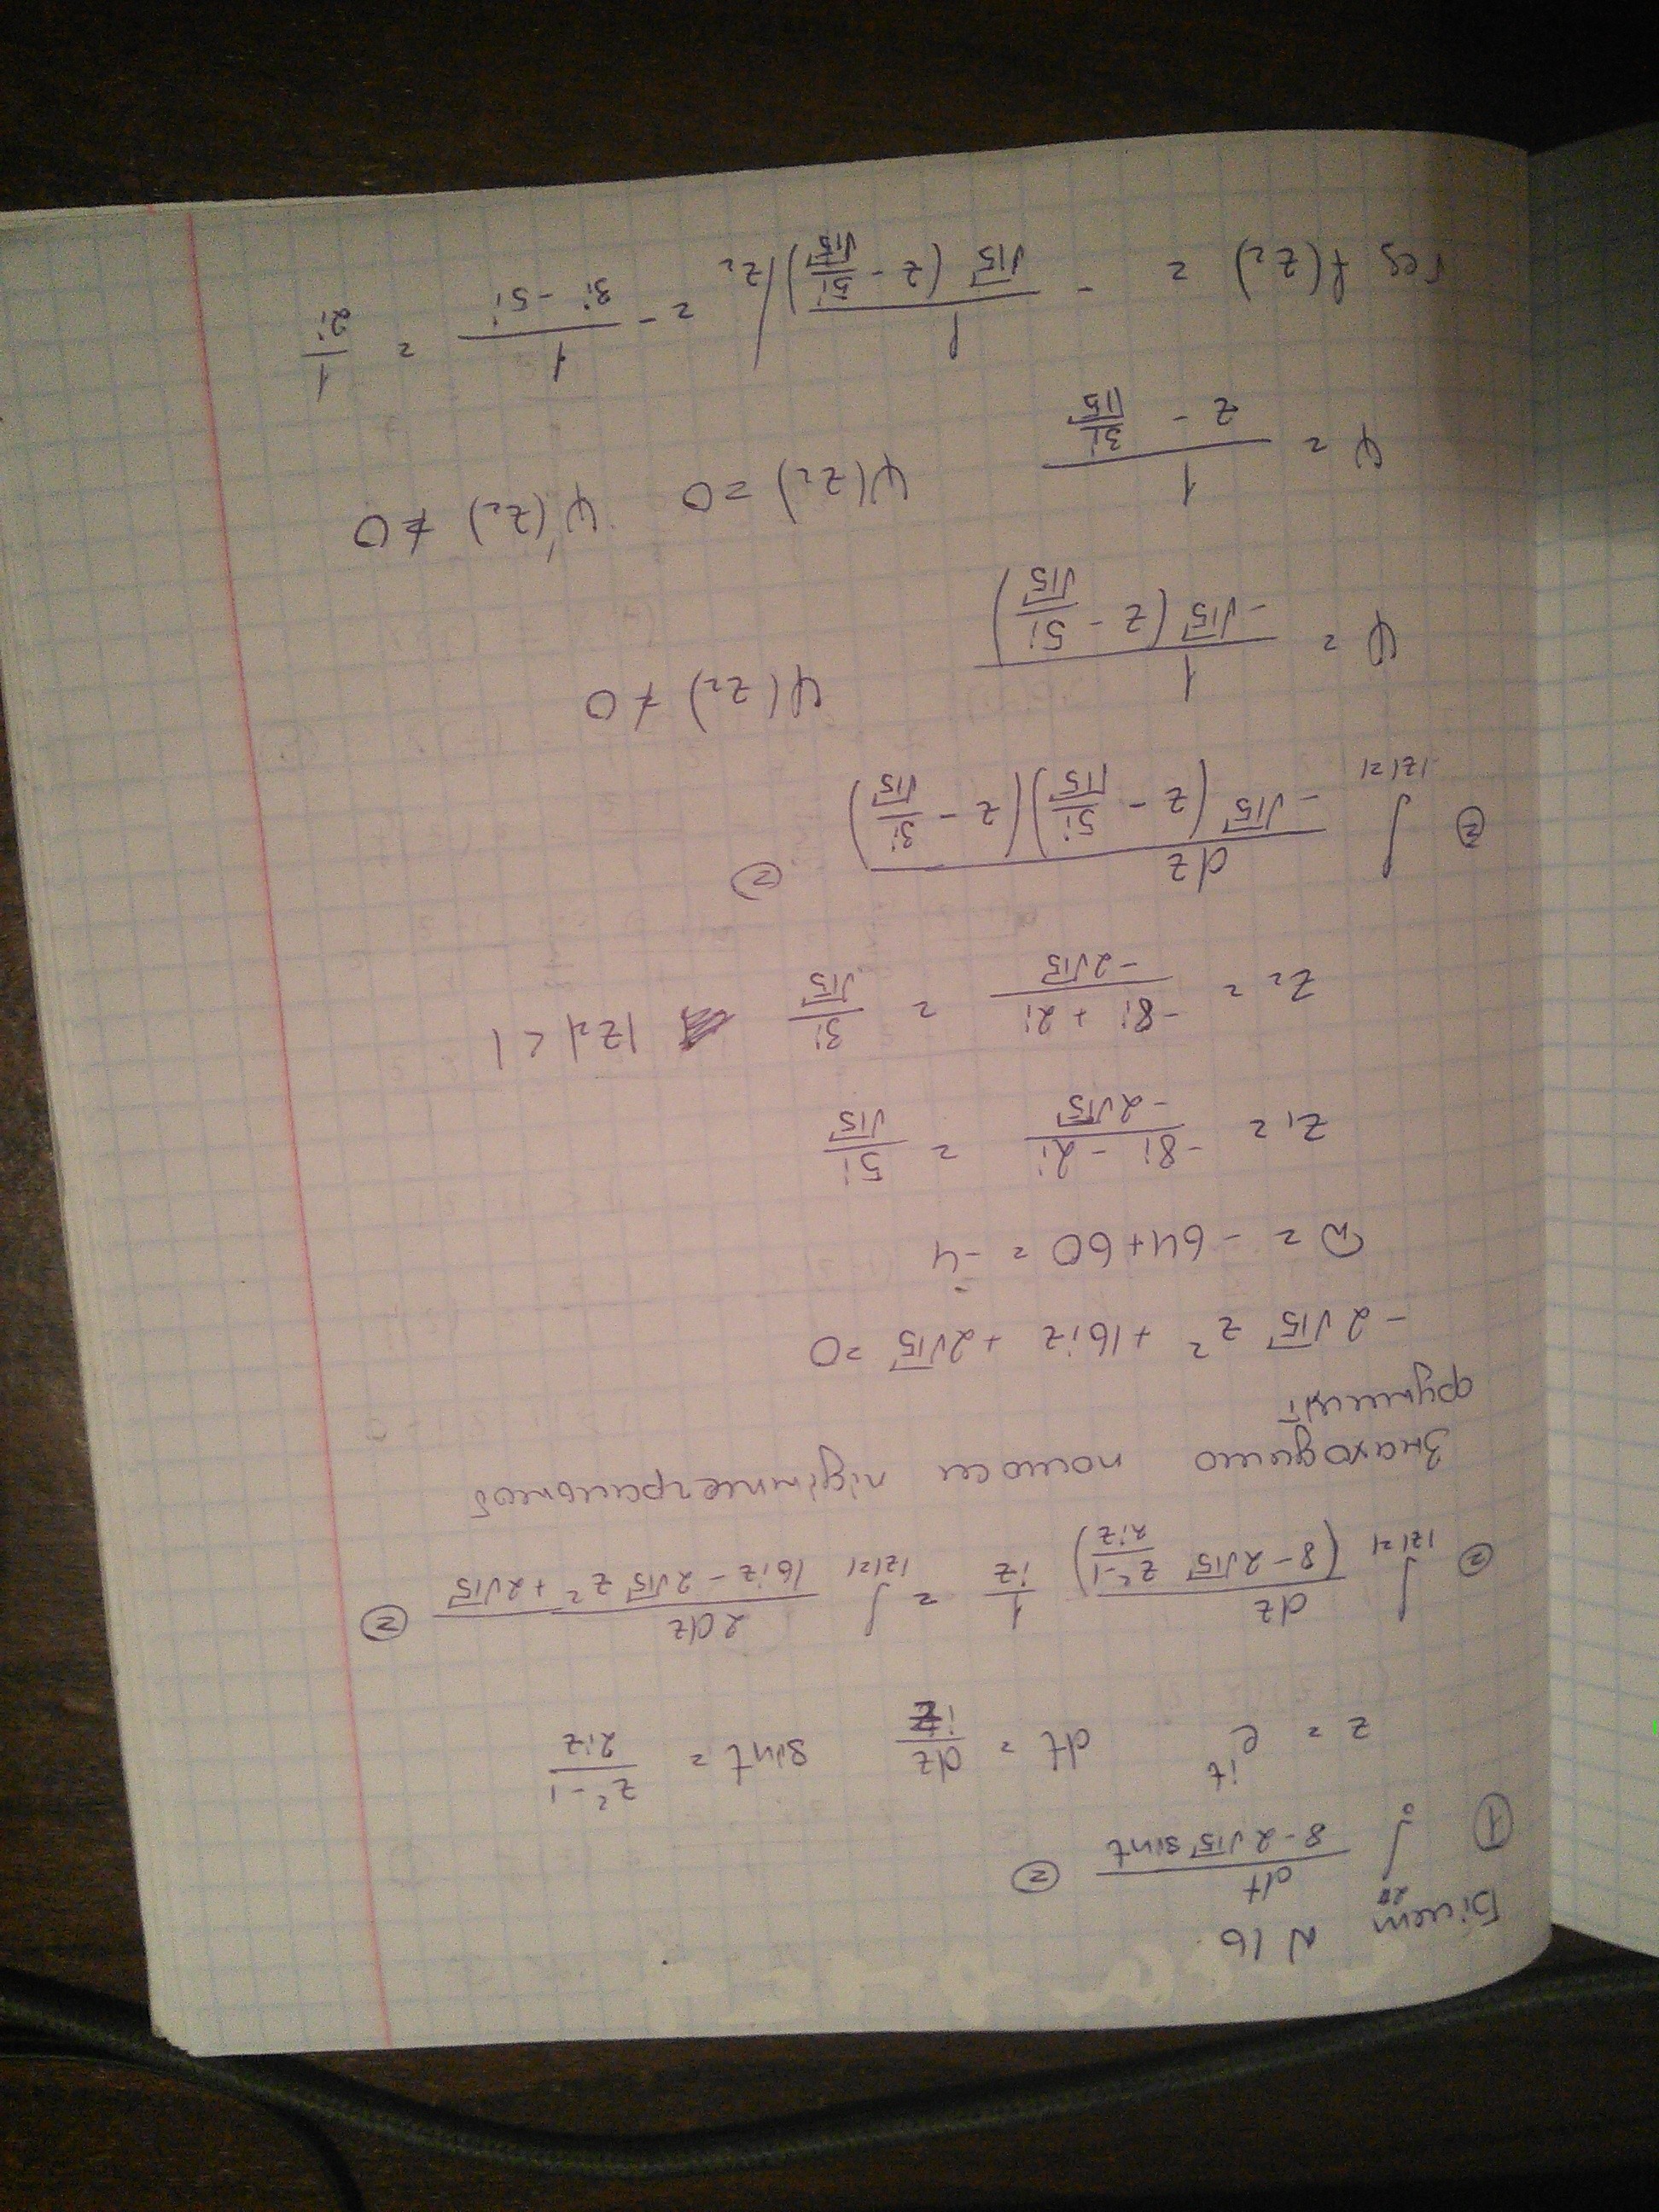 Білет N 16
① ∫₀^{2π} dt / (8 - 2√15 sint) ⊜
z = e^{it} dt = dz/iz sint = (z² - 1)/2iz
⊜ ∫_{|z|=1} dz / (8 - 2√15 (z² - 1)/2iz) 1/iz = ∫_{|z|=1} 2dz / (16iz - 2√15 z² + 2√15) ⊜
Знаходимо полюси підінтегральної
функції
- 2√15 z² + 16iz + 2√15 = 0
D = - 64 + 60 = -4
z₁ = (-8i - 2i)/(-2√15) = 5i/√15
z₂ = (-8i + 2i)/(-2√15) = 3i/√15 |z₂| < 1
⊜ ∫_{|z|=1} dz / (-√15 (z - 5i/√15)(z - 3i/√15)) ⊜
φ = 1 / (-√15 (z - 5i/√15)) φ(z₂) ≠ 0
ψ = 1 / (z - 3i/√15) ψ(z₂) = 0 ψ'(z₂) ≠ 0
res f(z₂) = - 1 / (√15 (z - 5i/√15)) |z₂ = - 1/(3i - 5i) = 1/2i